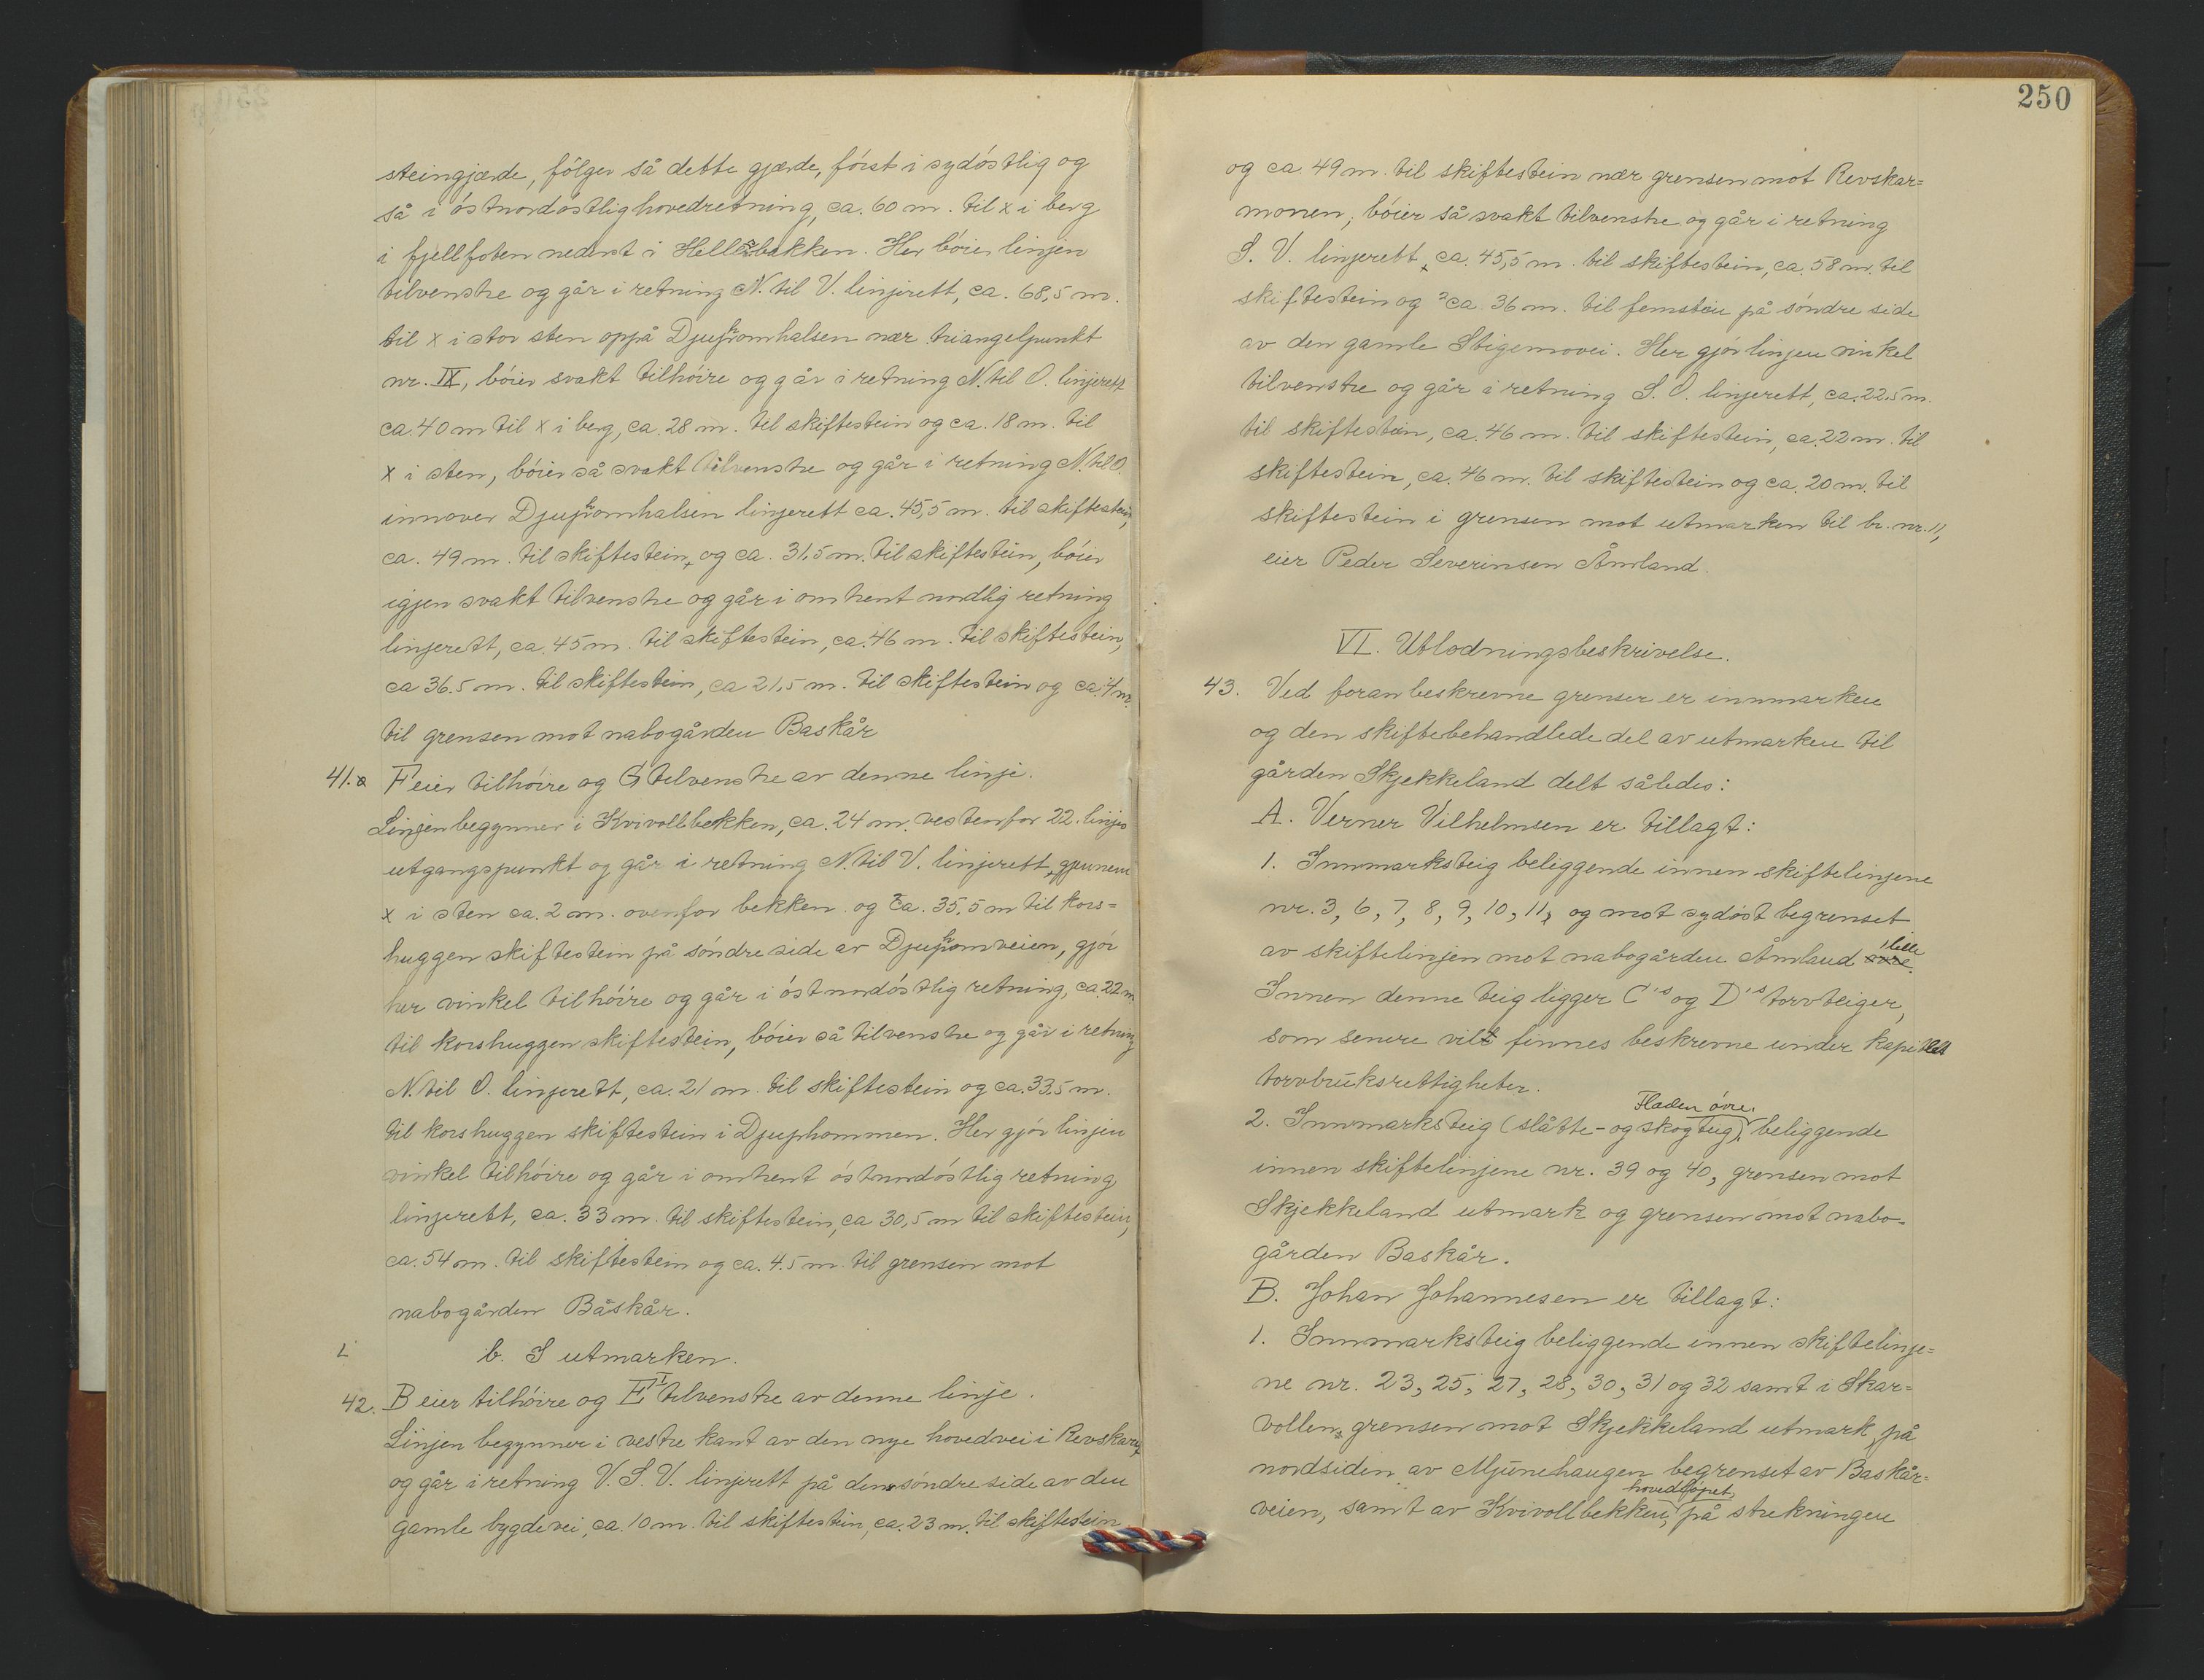 steingjærde, følger så dette gjærde, først i sydøstlig og
så i østnordøstlig hovedretning, ca. 60 m. til x i berg
i fjellfoten nederst i Hellebakken. Her bøier linjen
tilvenstre og går i retning N. til V. linjerett, ca. 68,5 m.
til x i stor sten oppå Djuphomhalsen nær triangelpunkt
nr. IX, bøier svakt tilhøire og går i retning N. til O. linjerett
ca. 40 m til x i berg, ca. 28 m. til skiftestein og ca. 18 m. til
x i sten, bøier så svakt tilvenstre og går i retning N. til O.
innover Djuphomhalsen linjerett ca. 45,5 m. til skiftestein,
ca. 49 m. til skiftestein, og ca. 31,5 m. til skiftestein, bøier
igjen svakt tilvenstre og går i omtrent nordlig retning
linjerett, ca. 45 m. til skiftestein, ca. 46 m. til skiftestein,
ca 36.5 m. til skiftestein, ca 21,5 m. til skiftestein og ca. 4 m.
til grensen mot nabogården Baskår
41.a F eier tilhøire og G tilvenstre av denne linje.
Linjen begynner i Kvivollbekken, ca. 24 m. vestenfor 22. linjes
utgangspunkt og går i retning N. til V. linjerett, gjennem
x i sten ca. 2 m. ovenfor bekken og ca. 35,5 m til kors=
huggen skiftestein på søndre side av Djuphomveien, gjør
her vinkel tilhøire og går i østnordøstlig retning, ca. 22 m
til korshuggen skiftestein, bøier så tilvenstre og går i retning
N. til O. linjerett, ca. 21 m. til skiftestein og ca. 33,5 m.
til korshuggen skiftestein i Djuphommen. Her gjør linjen
vinkel tilhøire og går i omtrent østnordøstlig retning
linjerett, ca. 33 m. til skiftestein, ca 30,5 m til skiftestein,
ca. 54 m. til skiftestein og ca. 4.5 m til grensen mot
nabogården Båskår.
b. I utmarken.
42. B eier tilhøire og E I tilvenstre av denne linje.
Linjen begynner i vestre kant av den nye hovedvei i Revskaret
og går i retning V. S. V. linjerett på den søndre side av den
gamle bygdevei, ca. 10 m. til skiftestein, ca. 23 m. til skiftestein
250
og ca. 49 m. til skiftestein nær grensen mot Revskar=
monen, bøier så svakt tilvenstre og går i retning
S. V. linjerett, ca. 45,5 m. til skiftestein, ca. 58 m. til
skiftestein og ca. 36 m. til femstein på søndre side
av den gamle Stigemovei. Her gjør linjen vinkel
tilvenstre og går i retning S. O. linjerett, ca. 22.5 m.
til skiftestein, ca. 46 m. til skiftestein, ca. 22 m. til
skiftestein, ca. 46 m. til skiftestein og ca. 20 m. til
skiftestein i grensen mot utmarken til br. nr. 11,
eier Peder Severinsen Åmland.
VI. Utlodningsbeskrivelse.
43. Ved foran beskrevne grenser er innmarken
og den skiftebehandlede del av utmarken til
gården Skjekkeland delt således:
A. Verner Vilhelmsen er tillagt:
1. Innmarksteig beliggende innen skiftelinjene
nr. 3, 6, 7, 8, 9, 10, 11, og mot sydøst begrenset
av skiftelinjen mot nabogården Åmland lille
Innen denne teig ligger C's og D's torvteiger,
som senere vil finnes beskrevne under kapitlet
torvbruksrettigheter.
Fladen øvre,
2. Innmarksteig (slåtte- og skogteig), beliggende
innen skiftelinjene nr. 39 og 40, grensen mot
Skjekkeland utmark og grensen mot nabo=
gården Baskår.
B. Johan Johannesen er tillagt:
1. Innmarksteig beliggende innen skiftelinje=
ne nr. 23, 25, 27, 28, 30, 31 og 32 samt i Skar=
vollen, grensen mot Skjekkeland utmark, på
nordsiden av Mjunehaugen begrenset av Baskår=
hovedløpet,
veien, samt av Kvivollbekken, på strekningen